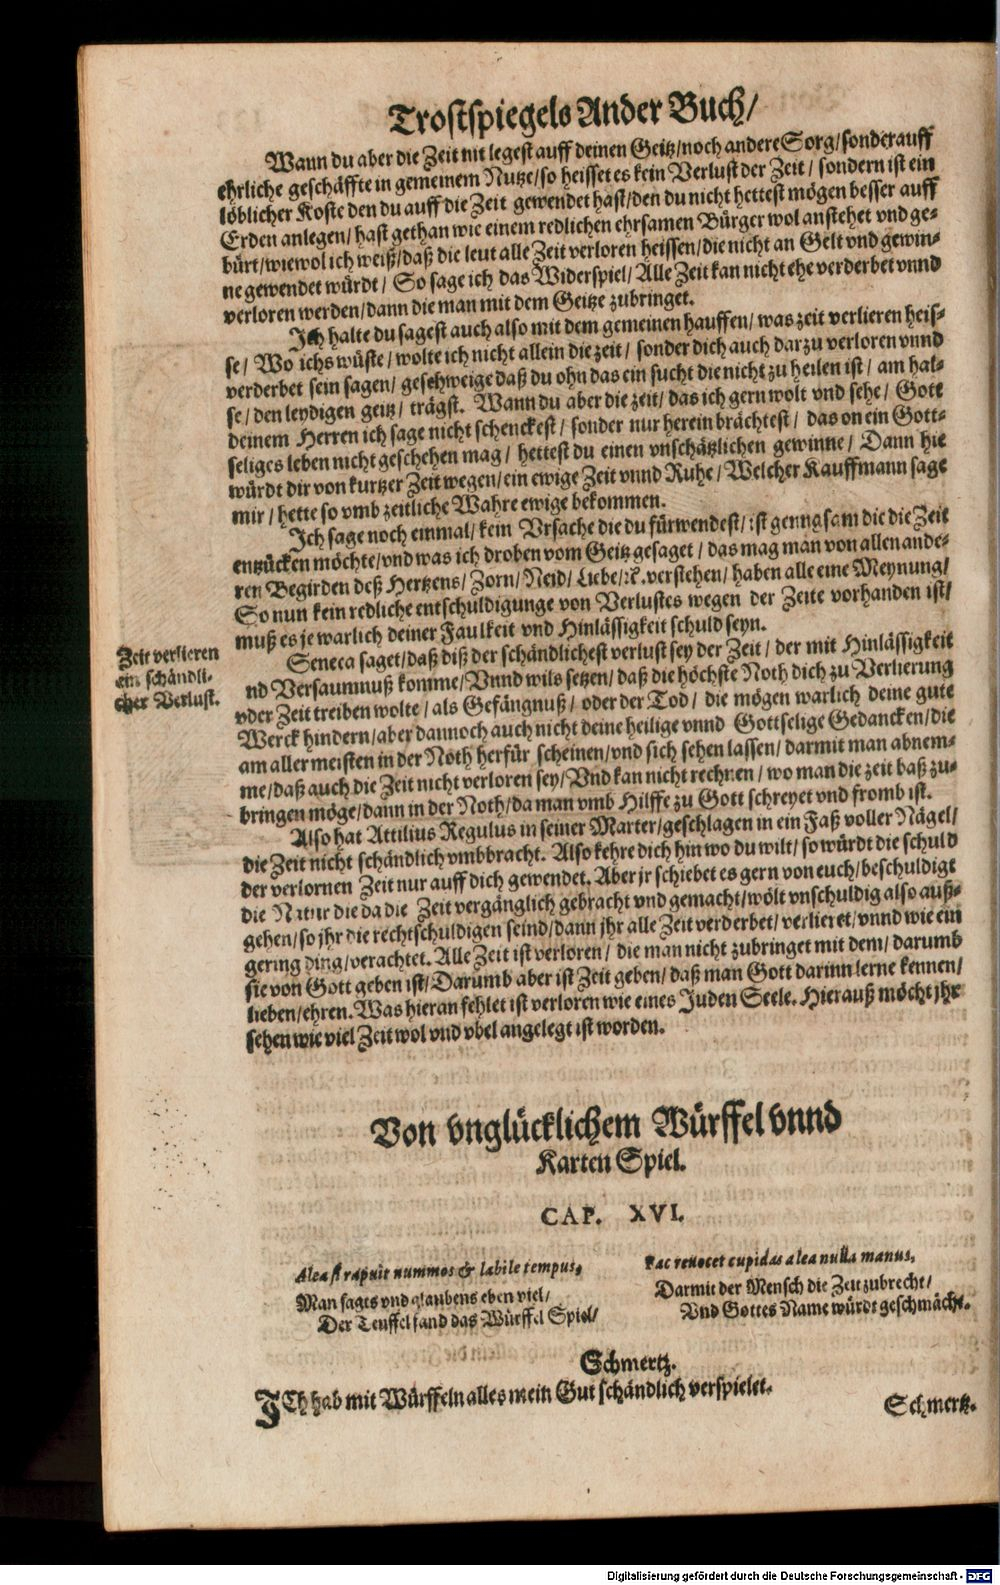 Trostspiegels Ander Buch/
Wann du aber die Zeit nit legest auff deinen Geitz/noch andere Sorg/sonder auff
ehrliche geschäffte in gemeinem Nutze/so heisset es kein Verlust der Zeit/ sondern ist ein
löblicher Koste den du auff die Zeit gewendet hast/den du nicht hettest mögen besser auff
Erden anlegen/ hast gethan wie einem redlichen ehrsamen Bürger wol anstehet vnd ge-
bürt/wiewol ich weiß/daß die leut alle Zeit verloren heissen/die nicht an Gelt vnd gewin-
ne gewendet würdt/ So sage ich das Widerspiel/Alle Zeit kan nicht ehe verderbet vnnd
verloren werden/dann die man mit dem Geitze zubringet.
Ich halte du sagest auch also mit dem gemeinen hauffen/was zeit verlieren heis-
se/ Wo ichs wüste/wolte ich nicht allein die zeit/ sonder dich auch darzu verloren vnnd
verderbet sein sagen/ geschweige daß du ohn das ein sucht die nicht zu heilen ist/ am hal-
se/den leydigen geitz/ trägst. Wann du aber die zeit/das ich gern wolt vnd sehe/ Gott
deinem Herren ich sage nicht schenckest/ sonder nur herein brächtest/ das on ein Gott-
seliges leben nicht geschehen mag/ hettest du einen vnschätzlichen gewinne/ Dann hie
würdt dir von kurtzer Zeit wegen/ein ewige Zeit vnnd Ruhe/Welcher Kauffmann sage
mir/hette so vmb zeitliche Wahre ewige bekommen.
Ich sage noch einmal/kein Vrsache die du fürwendest/ist genugsam die die Zeit
entzücken möchte/vnd was ich droben vom Geitz gesaget/das mag man von allen ande-
ren Begirden deß Hertzens/Zorn/Neid/Liebe/ꝛc.verstehen/haben alle eine Meynung/
So nun kein redliche entschuldigunge von Verlustes wegen der Zeite vorhanden ist/
muß es je warlich deiner Faulkeit vnd Hinlässigkeit schuld seyn.
Zeit verlieren
ein schändli-
cher Verlust.
Seneca saget/daß diß der schändlichest verlust sey der Zeit/der mit Hinlässigkeit
nd Versaumnuß komme/Vnnd wils setzen/daß die höchste Noth dich zu Verlierung
vder Zeit treiben wolte/als Gefängnuß/oder der Tod/ die mögen warlich deine gute
Werck hindern/aber dannoch auch nicht deine heilige vnnd Gottselige Gedancken/die
am aller meisten in der Noth herfür scheinen/vnd sich sehen lassen/darmit man abnem-
me/daß auch die Zeit nicht verloren sey/Vnd kan nicht rechnen/wo man die zeit baß zu-
bringen möge/dann in der Noth/da man vmb Hilffe zu Gott schreyet vnd fromb ist.
Also hat Attilius Regulus in seiner Marter/geschlagen in ein Faß voller Nägel/
die Zeit nicht schändlich vmbbracht. Also kehre dich hin wo du wilt/so würdt die schuld
der verlornen Zeit nur auff dich gewendet. Aber jr schiebet es gern von euch/beschuldigt
die Natur die da die Zeit vergänglich gebracht vnd gemacht/wölt vnschuldig also auß-
gehen/so jhr die rechtschuldigen seind/dann jhr alle Zeit verderbet/verlieret/vnnd wie ein
gering ding/verachtet. Alle Zeit ist verloren/ die man nicht zubringet mit dem/darumb
sie von Gott geben ist/Darumb aber ist Zeit geben/daß man Gott darinn lerne kennen/
lieben/ehren. Was hieran fehlet ist verloren wie eines Juden Seele. Hierauß möcht jhr
sehen wie viel Zeit wol vnd vbel angelegt ist worden.
Von vnglücklichem Würffel vnnd
Karten Spiel.
CAP. XVI.
Alea si rapuit nummos & labile tempus,
Man sagts vnd glaubens eben viel/
Der Teuffel fand das Würffel Spiel/
Fac reuocet cupidas alea nulla manus.
Darmit der Mensch die Zeit zubrecht/
Vnd Gottes Name würdt geschmächt.
Schmertz.
ICh hab mit Würffeln alles mein Gut schändlich verspielet.
Schmertz.
Digitalisierung gefördert durch die Deutsche Forschungsgemeinschaft - DFG